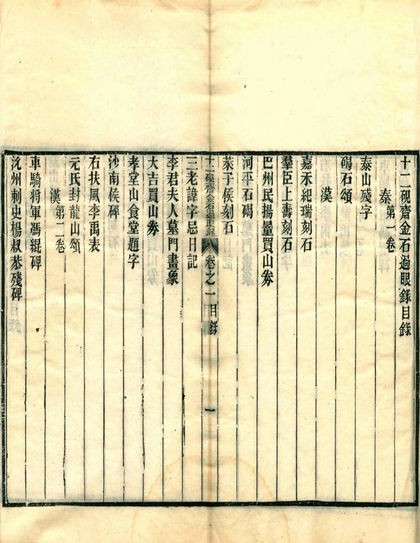 十二硯齋金石過眼錄目錄
秦 第一卷
泰山殘字
碣石頌
漢
嘉禾紀瑞刻石
羣臣上壽刻石
巴州民揚量買山劵
河平石碣
萊子侯刻石
十二硯齋金石過眼錄 卷之一 目錄 一
三老諱字忌日記
李君夫人墓門畫象
大吉買山劵
孝堂山食堂題字
沙南侯碑
右扶風李禹表
元氏封龍山頌
漢 第二卷
車騎將軍馮緄碑
沇州刺史楊叔恭殘碑